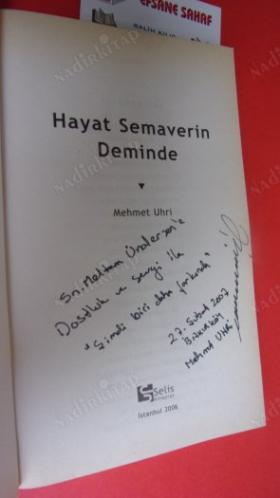 EFSANE SAHAF
Hayat Semaverin
Deminde
Mehmet Uhri
Sn. Meltem Ünalersen'e
Dostluk ve sevgi ile
"Şimdi biri daha farkında"
27. Şubat 2007
Bakırköy
Mehmet Uhri
Selis
İstanbul 2006
NadirKitap